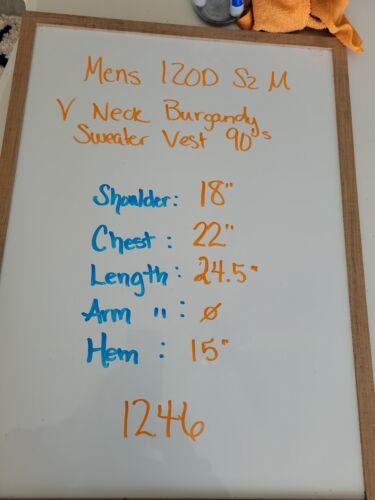 Mens IZOD Sz M
V Neck Burgandy
Sweater Vest 90's
Shoulder: 18"
Chest: 22"
Length: 24.5"
Arm ": ø
Hem: 15"
1246